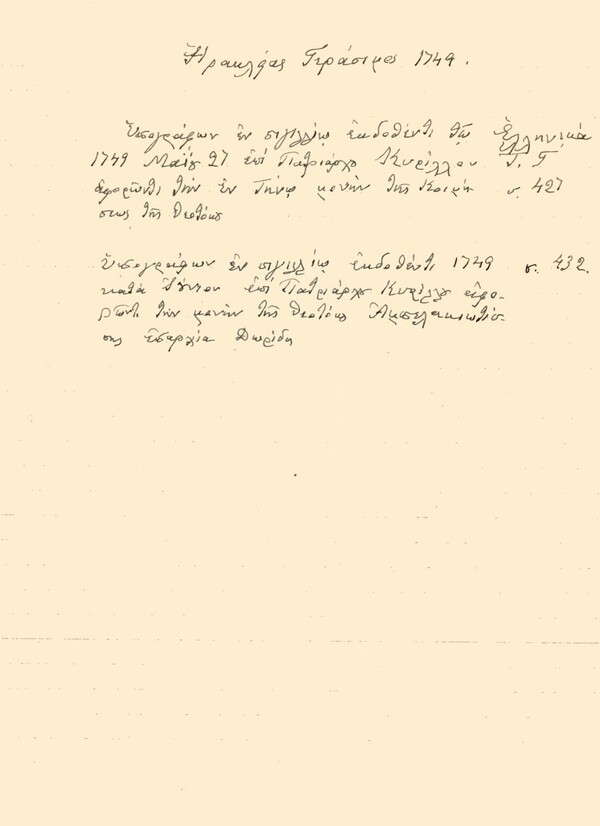 Ἡρακλείας Γεράσιμος 1749.
Ὑπογράφων ἐν σιγιλλίῳ ἐκδοθέντι τῷ Ἑλληνικὰ
1749 Μαΐου 27 ἐπὶ Πατριάρχου Κυρίλλου Τ. Γ
ἀφορῶντι τὴν ἐν Τήνῳ μονὴν τῆς Κοιμή- σ. 427
σεως τῆς Θεοτόκου
Ὑπογράφων ἐν σιγιλλίῳ ἐκδοθέντι 1749 σ. 432.
κατὰ Ἰούνιον ἐπὶ Πατριάρχου Κυρίλλου ἀφο-
ρῶντι τὴν μονὴν τῆς Θεοτόκου Ἀμπελακιωτίσ-
σης ἐπαρχία Δωρίδος